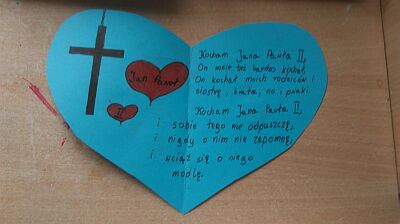 Jan Paweł
II
Kocham Jana Pawła II,
On mnie też bardzo kochał,
On kochał moich rodziców i
siostrę, brata, no i psiaki.
Kocham Jana Pawła II,
i sobie tego nie odpuszczę,
i nigdy o nim nie zapomnę,
i wciąż się o niego
modlę.